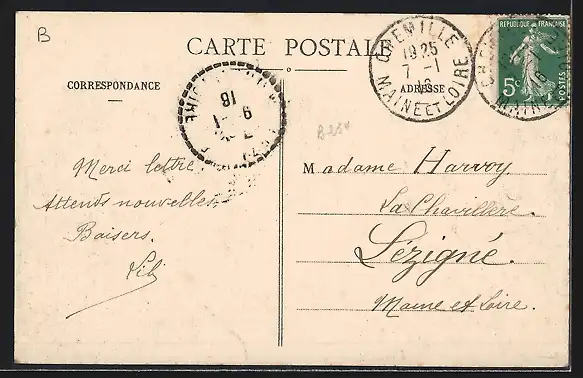 B
CARTE POSTALE
CORRESPONDANCE
ADRESSE
19 25
7 - 1
16
MAINE ET LOIRE
REPUBLIQUE FRANÇAISE
5c
POSTES
18
B25v
Merci lettre
Attends nouvelles.
Baisers.
Madame Harvoy
La Chavillère.
Lézigné.
Maine et Loire.